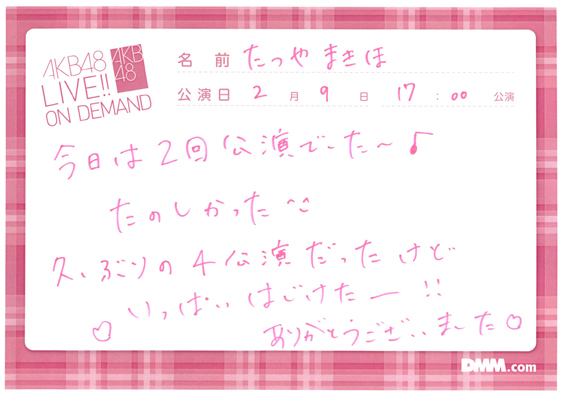 AKB48
LIVE!!
ON DEMAND
AKB
48
名前 たつや まきほ
公演日 2月9日 17:00 公演
今日は2回公演でした〜♪
たのしかった
久しぶりの4公演だったけど
いっぱいはじけたー!!
♡ ありがとうございました♡
DMM.com